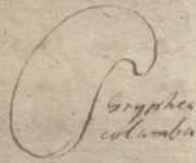 Gryphea
columba